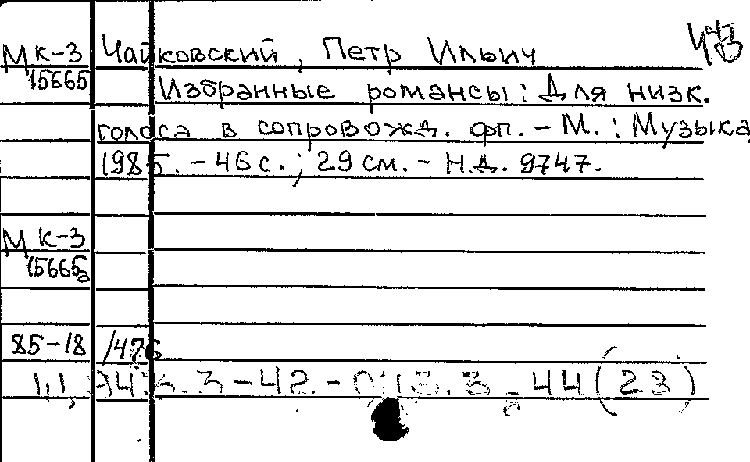 МК-3 Чайковский, Петр Ильич
15665 Избранные романсы: Для низк.
голоса в сопровожд. фп. - М.: Музыка
1985. - 46 с.; 29 см. - Н.Д. 9747.
МК-3
15665а
85-18 /476
44(23)